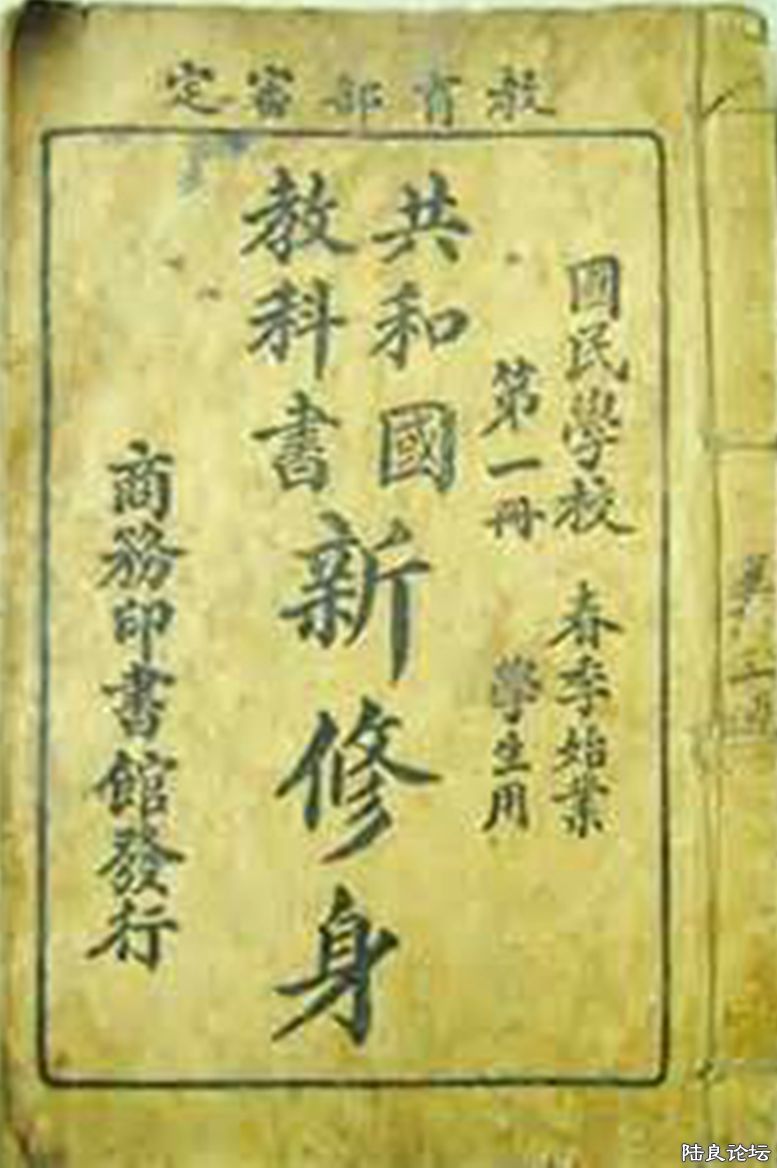 教育部審定
國民學校 春季始業
第一冊 學生用
共和國
教科書
新修身
商務印書館發行
陆良论坛